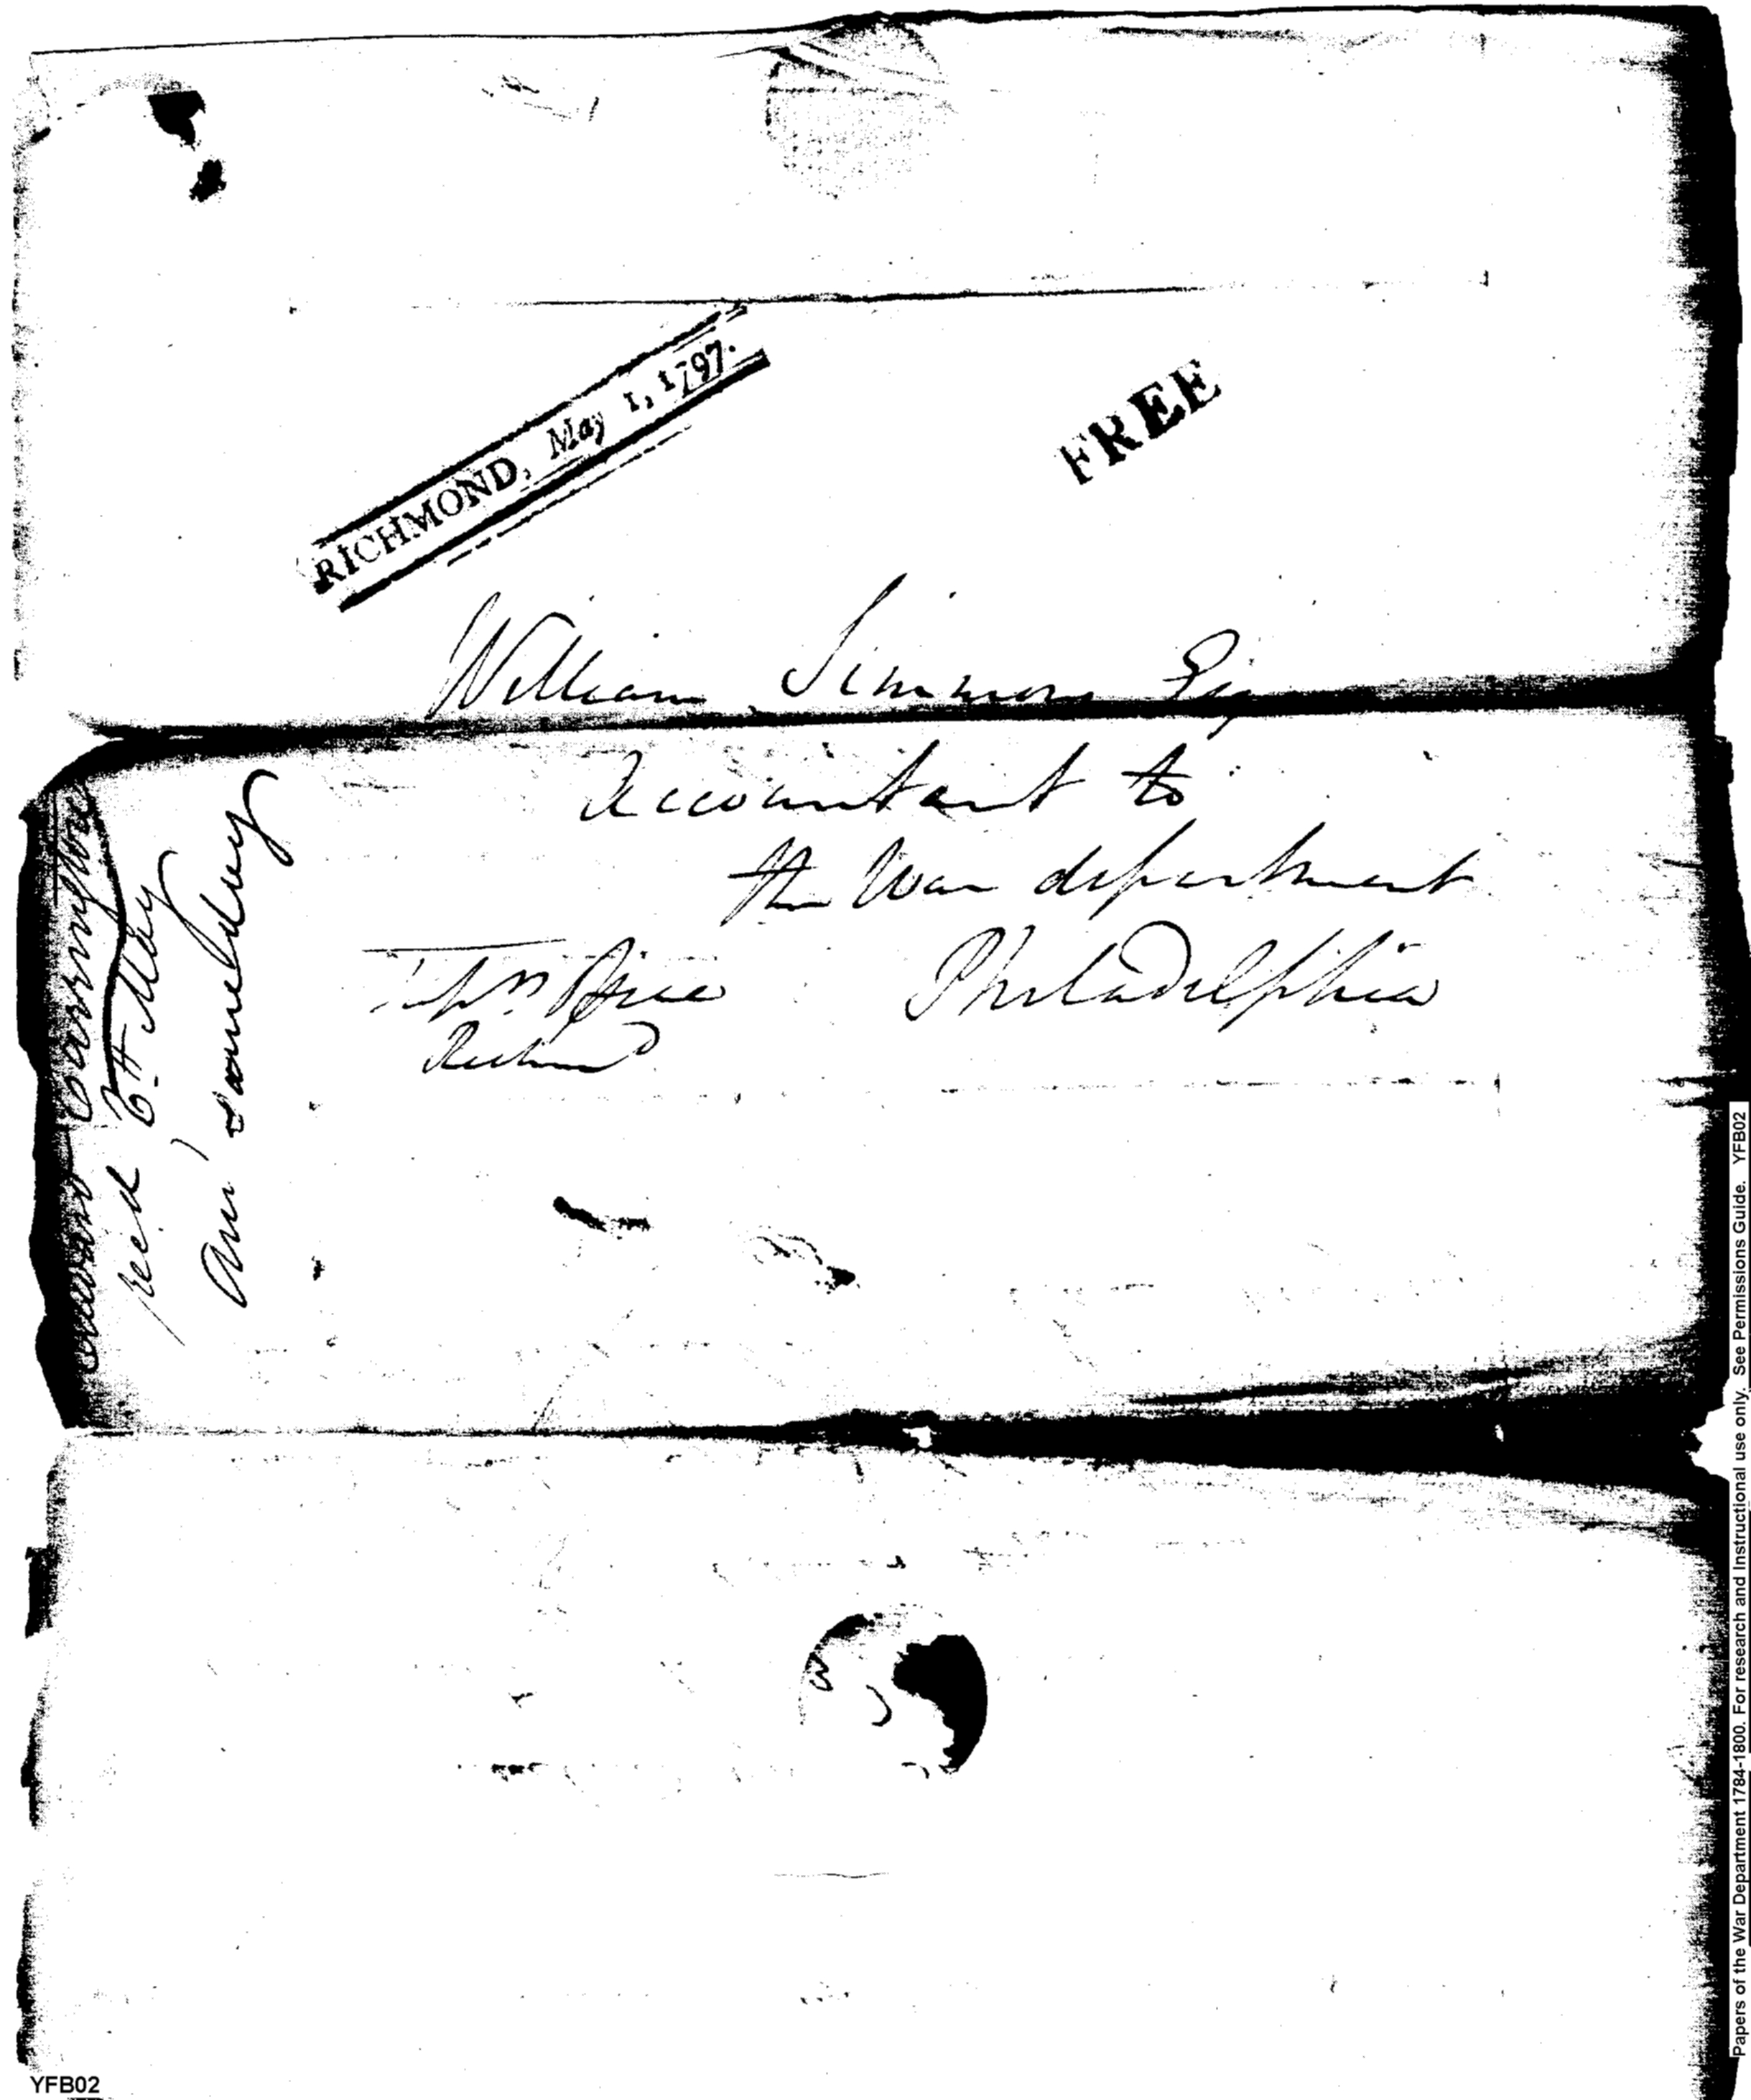 RICHMOND, May 1, 1797.
FREE
William Simmons Esq
Accountant to
the War department
Philadelphia
Office
Richmd
Edward Carrington
recd 6th May
Ansd same day
Papers of the War Department 1784-1800. For research and Instructional use only. See Permissions Guide. YFB02
YFB02